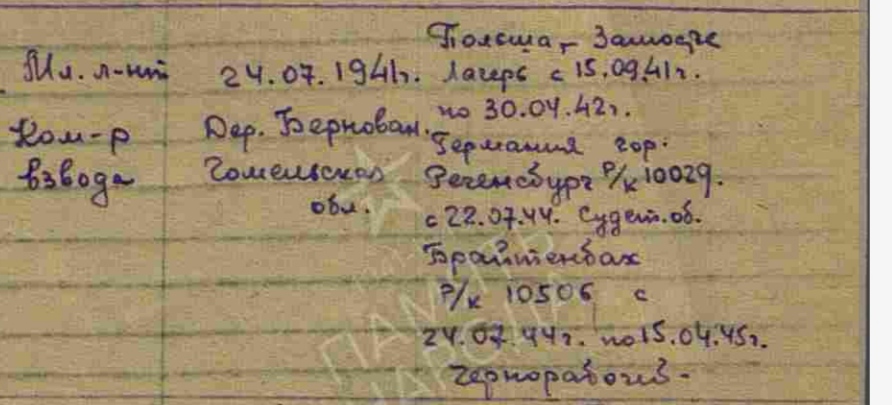 Мл. л-нт
Ком-р
взвода
24.07.1941г.
Дер. Бернован.
Гомельская
обл.
Польша, Замосце
Лагерь с 15.09.41г.
по 30.04.42г.
Германия гор.
Регенсбург Р/к 10029.
с 22.07.44. Судет. об.
Брайтенбах
Р/к 10506 с
24.07.44г. по 15.04.45г.
чернорабочий -
ПАМЯТЬ
НАРОДА